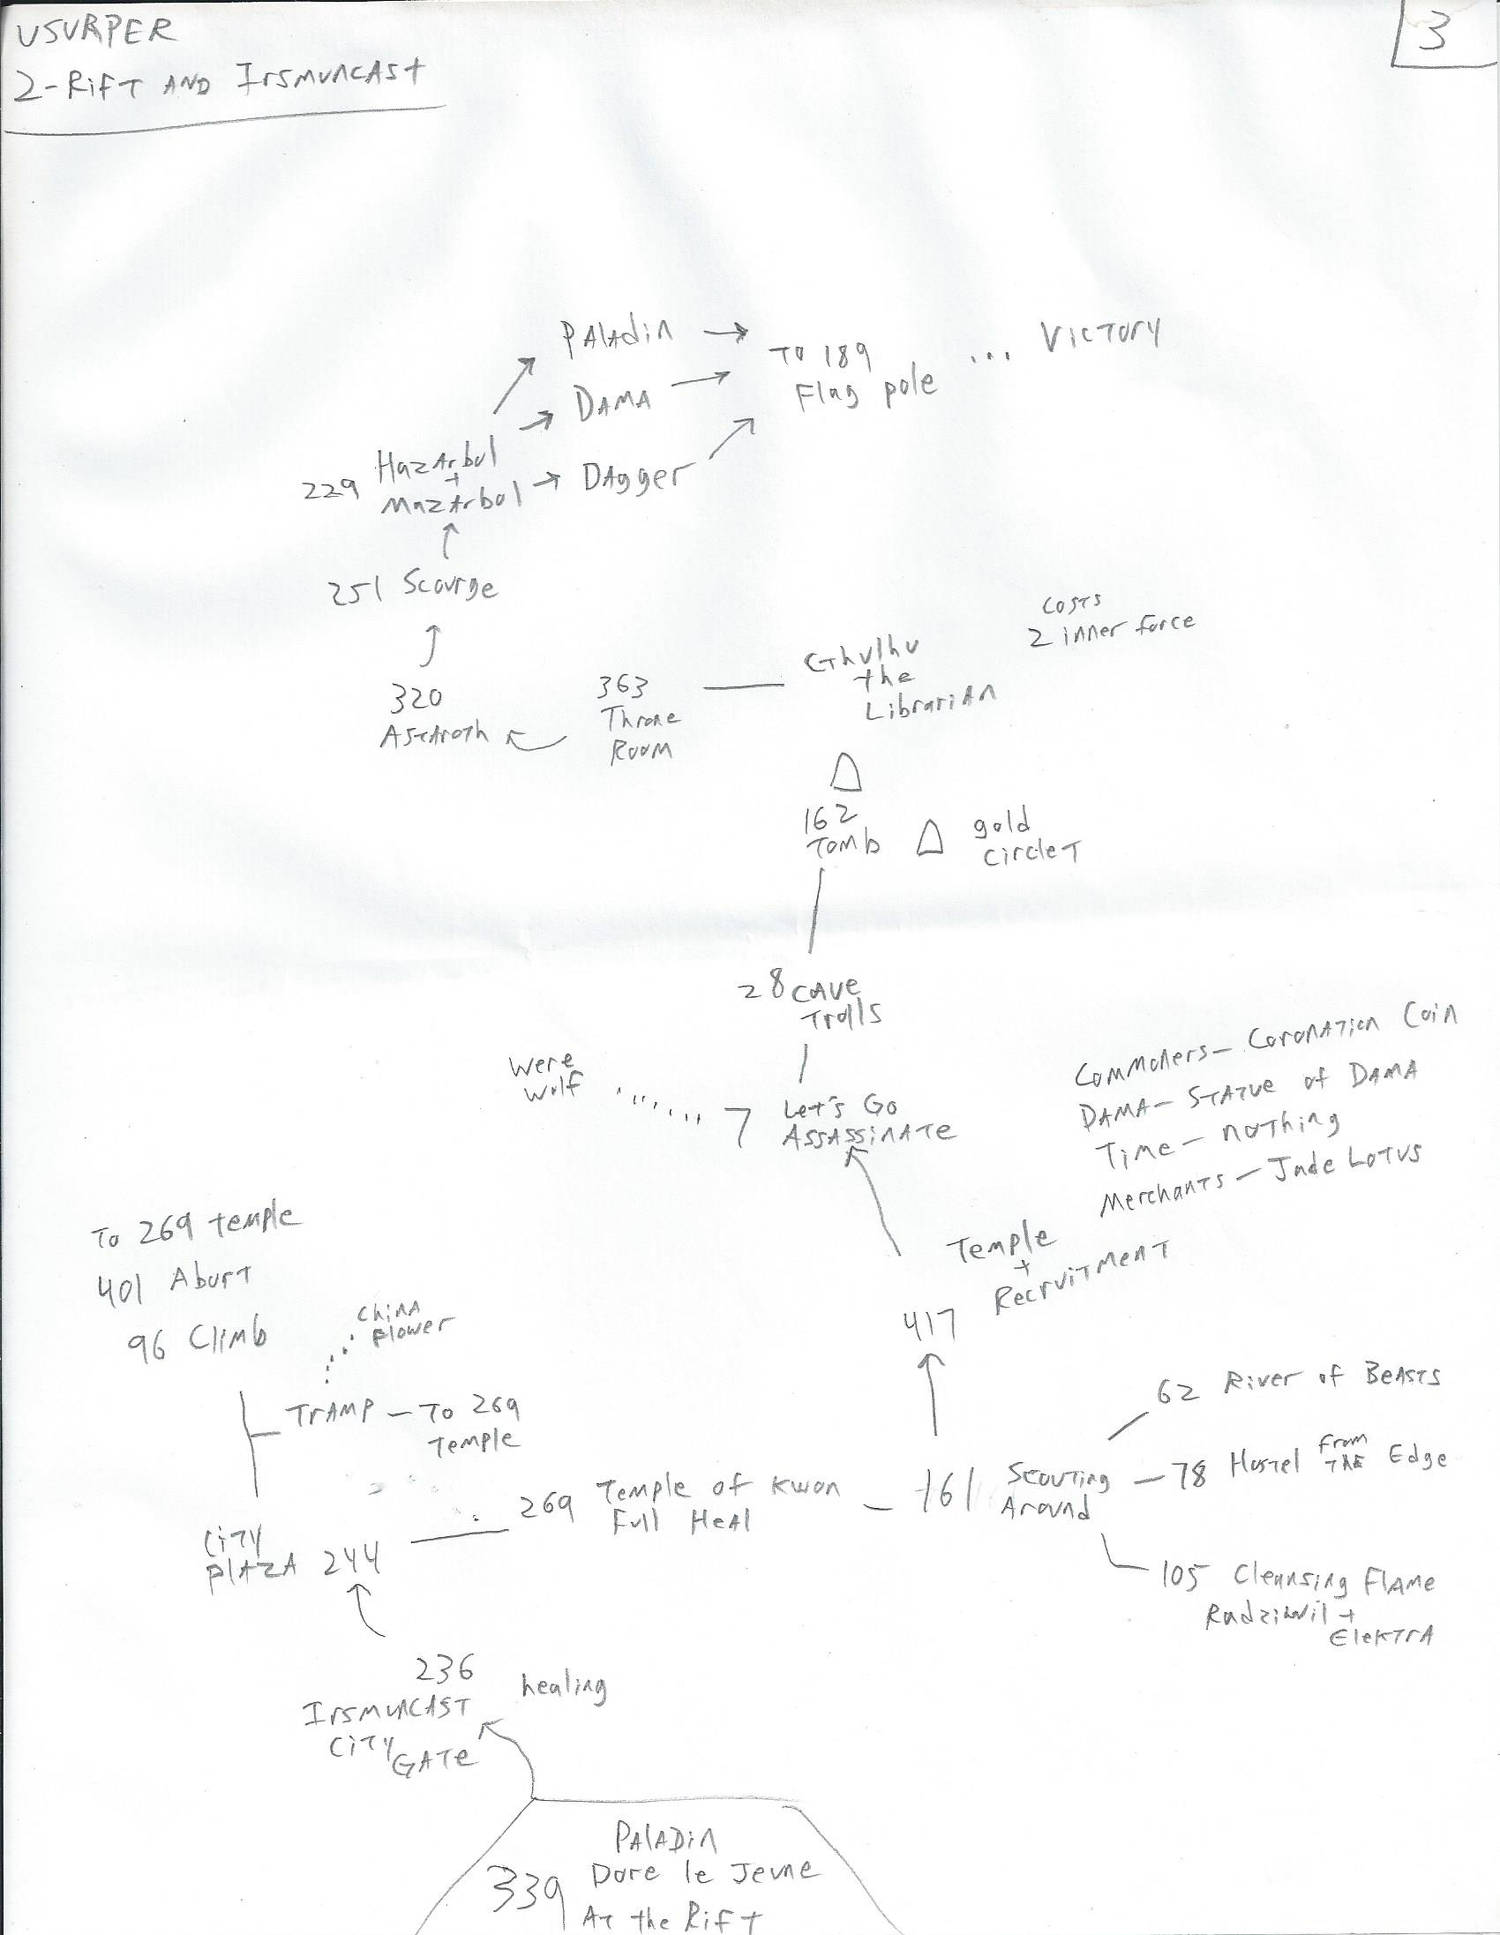 USURPER
3
2-Rift and Irsmuncast
Paladin
To 189
Flag pole
... Victory
Dama
Dagger
229 Hazarbol
+
Mazarbol
251 Scourge
320
Astaroth
363
Throne
Room
Cthulhu
the
Librarian
costs
2 inner force
162
Tomb
gold
circlet
28 Cave
Trolls
Were
wolf
7 Let's Go
Assassinate
Commoners - Coronation Coin
Dama - Statue of Dama
Time - nothing
Merchants - Jade Lotus
Temple
+
Recruitment
417
To 269 temple
401 Abort
96 Climb
China
Flower
Tramp - To 269
Temple
City
Plaza 244
269 Temple of Kwon
Full Heal
161 Scouting
Around
62 River of Beasts
78 Hostel From the Edge
105 Cleansing Flame
Radziwil +
Elektra
236
Irsmuncast
City Gate
healing
Paladin
339 Dore le Jeune
At the Rift